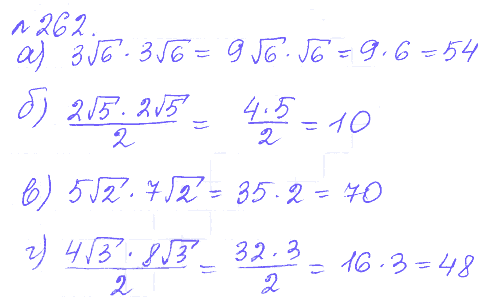 №262.
а) 3√6 · 3√6 = 9√6 · √6 = 9 · 6 = 54
б) (2√5 · 2√5)/2 = (4 · 5)/2 = 10
в) 5√2 · 7√2 = 35 · 2 = 70
г) (4√3 · 8√3)/2 = (32 · 3)/2 = 16 · 3 = 48